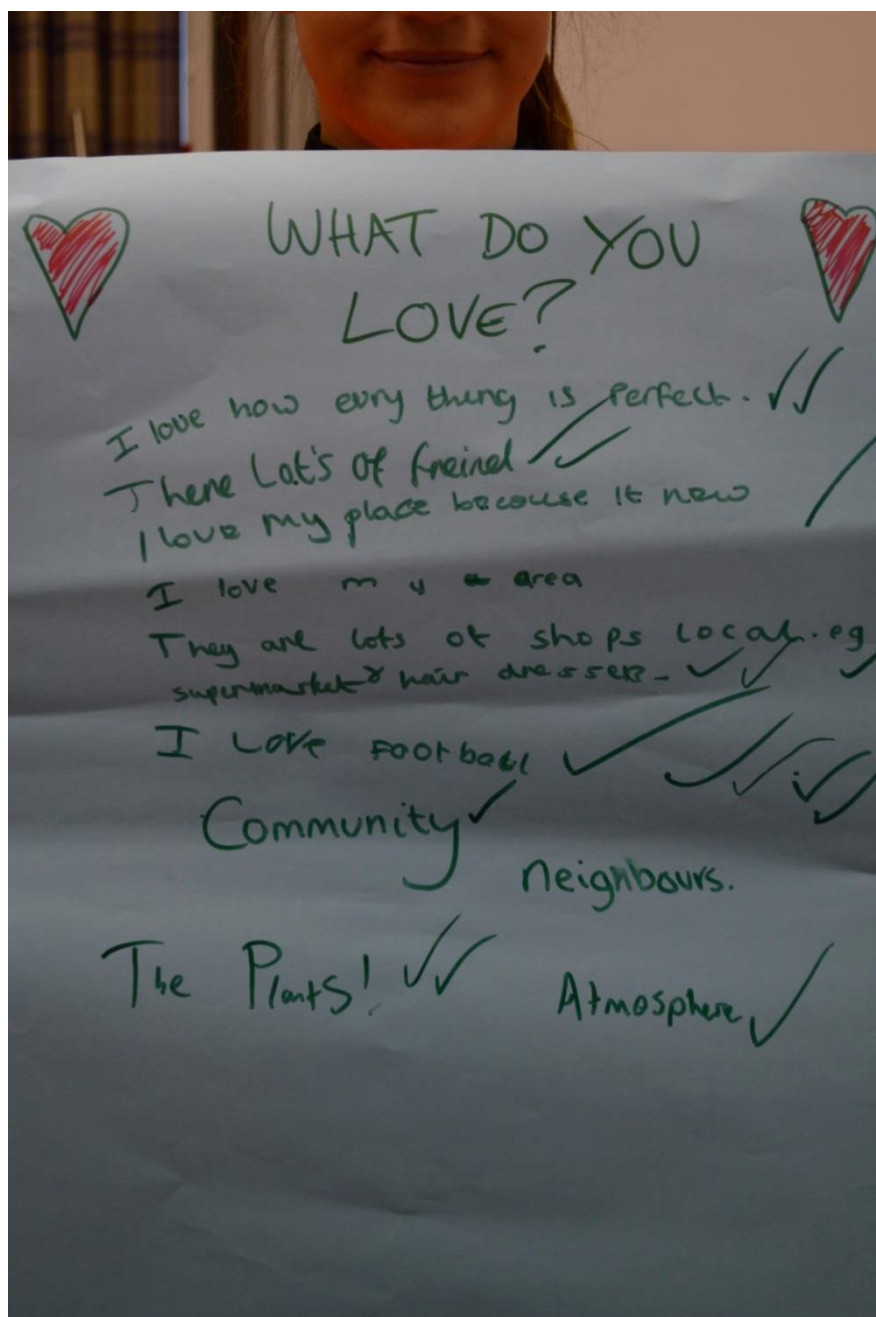 WHAT DO YOU
LOVE?
I love how evry thing is perfect.
There Lot's of freind
I love my place becouse it new
I love my area
They are lots of shops Local. eg
supermarket & hair dressers.
I Love Football
Community
neighbours.
The Plants!
Atmosphere